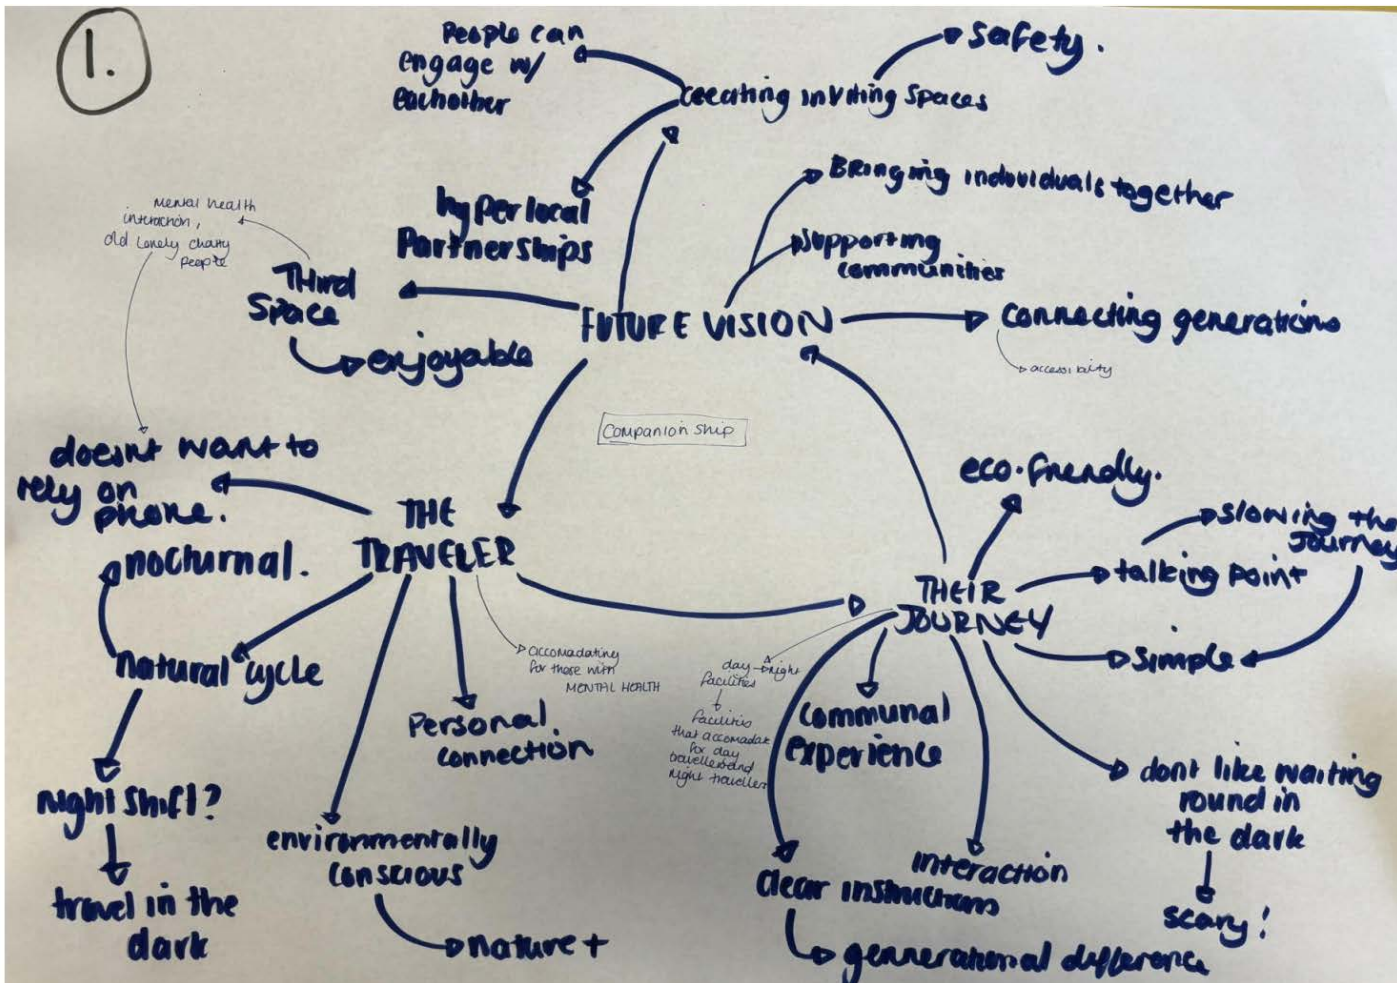 1.
People can
engage w/
eachother
creating inviting spaces
safety.
hyperlocal
Partnerships
Bringing individuals together
supporting
communities
mental health
interaction,
old lonely chatty
people
Third
Space
enjoyable
FUTURE VISION
connecting generations
accessibility
Companionship
doesnt want to
rely on
phone.
THE
TRAVELER
nocturnal.
natural cycle
night shift?
travel in the
dark
environmentally
conscious
nature +
Personal
connection
accomadating
for those with
MENTAL HEALTH
eco-friendly.
slowing the
Journey
talking point
simple
THEIR
JOURNEY
day night
facilities
facilities
that accomadate
for day
travellers and
night travellers
communal
experience
clear instructions
gennerational difference
interaction
dont like waiting
round in
the dark
scary!